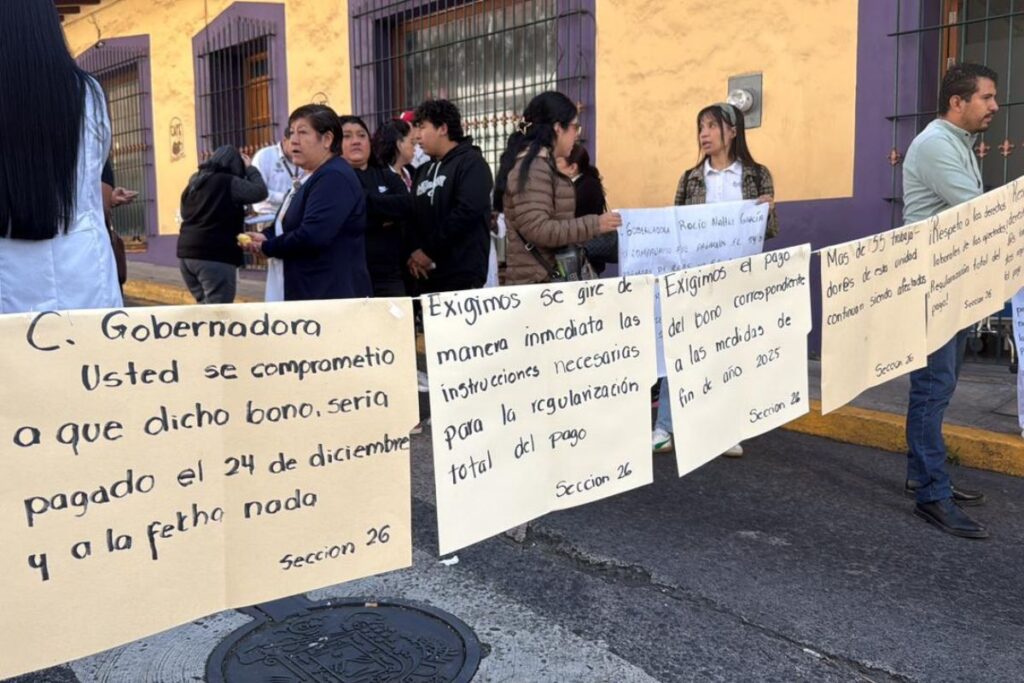 C. Gobernadora
Usted se comprometio
a que dicho bono, seria
pagado el 24 de diciembre
y a la fetha nada
Seccion 26
Exigimos se gire de
manera inmediata las
instrucciones necesarias
para la regularización
total del pago
Seccion 26
Exigimos el pago
del bono correspondiente
a las medidas de
fin de año 2025
Sección 26
GOBERNADORA ROCIO NAHLE GARCÍA
Mas de 55 trabaja-
dores de esta unidad
continuan siendo afectados
Sección 26
¡Respeto a los derechos
laborales de los
Regularización total del
pago!
Sección 26